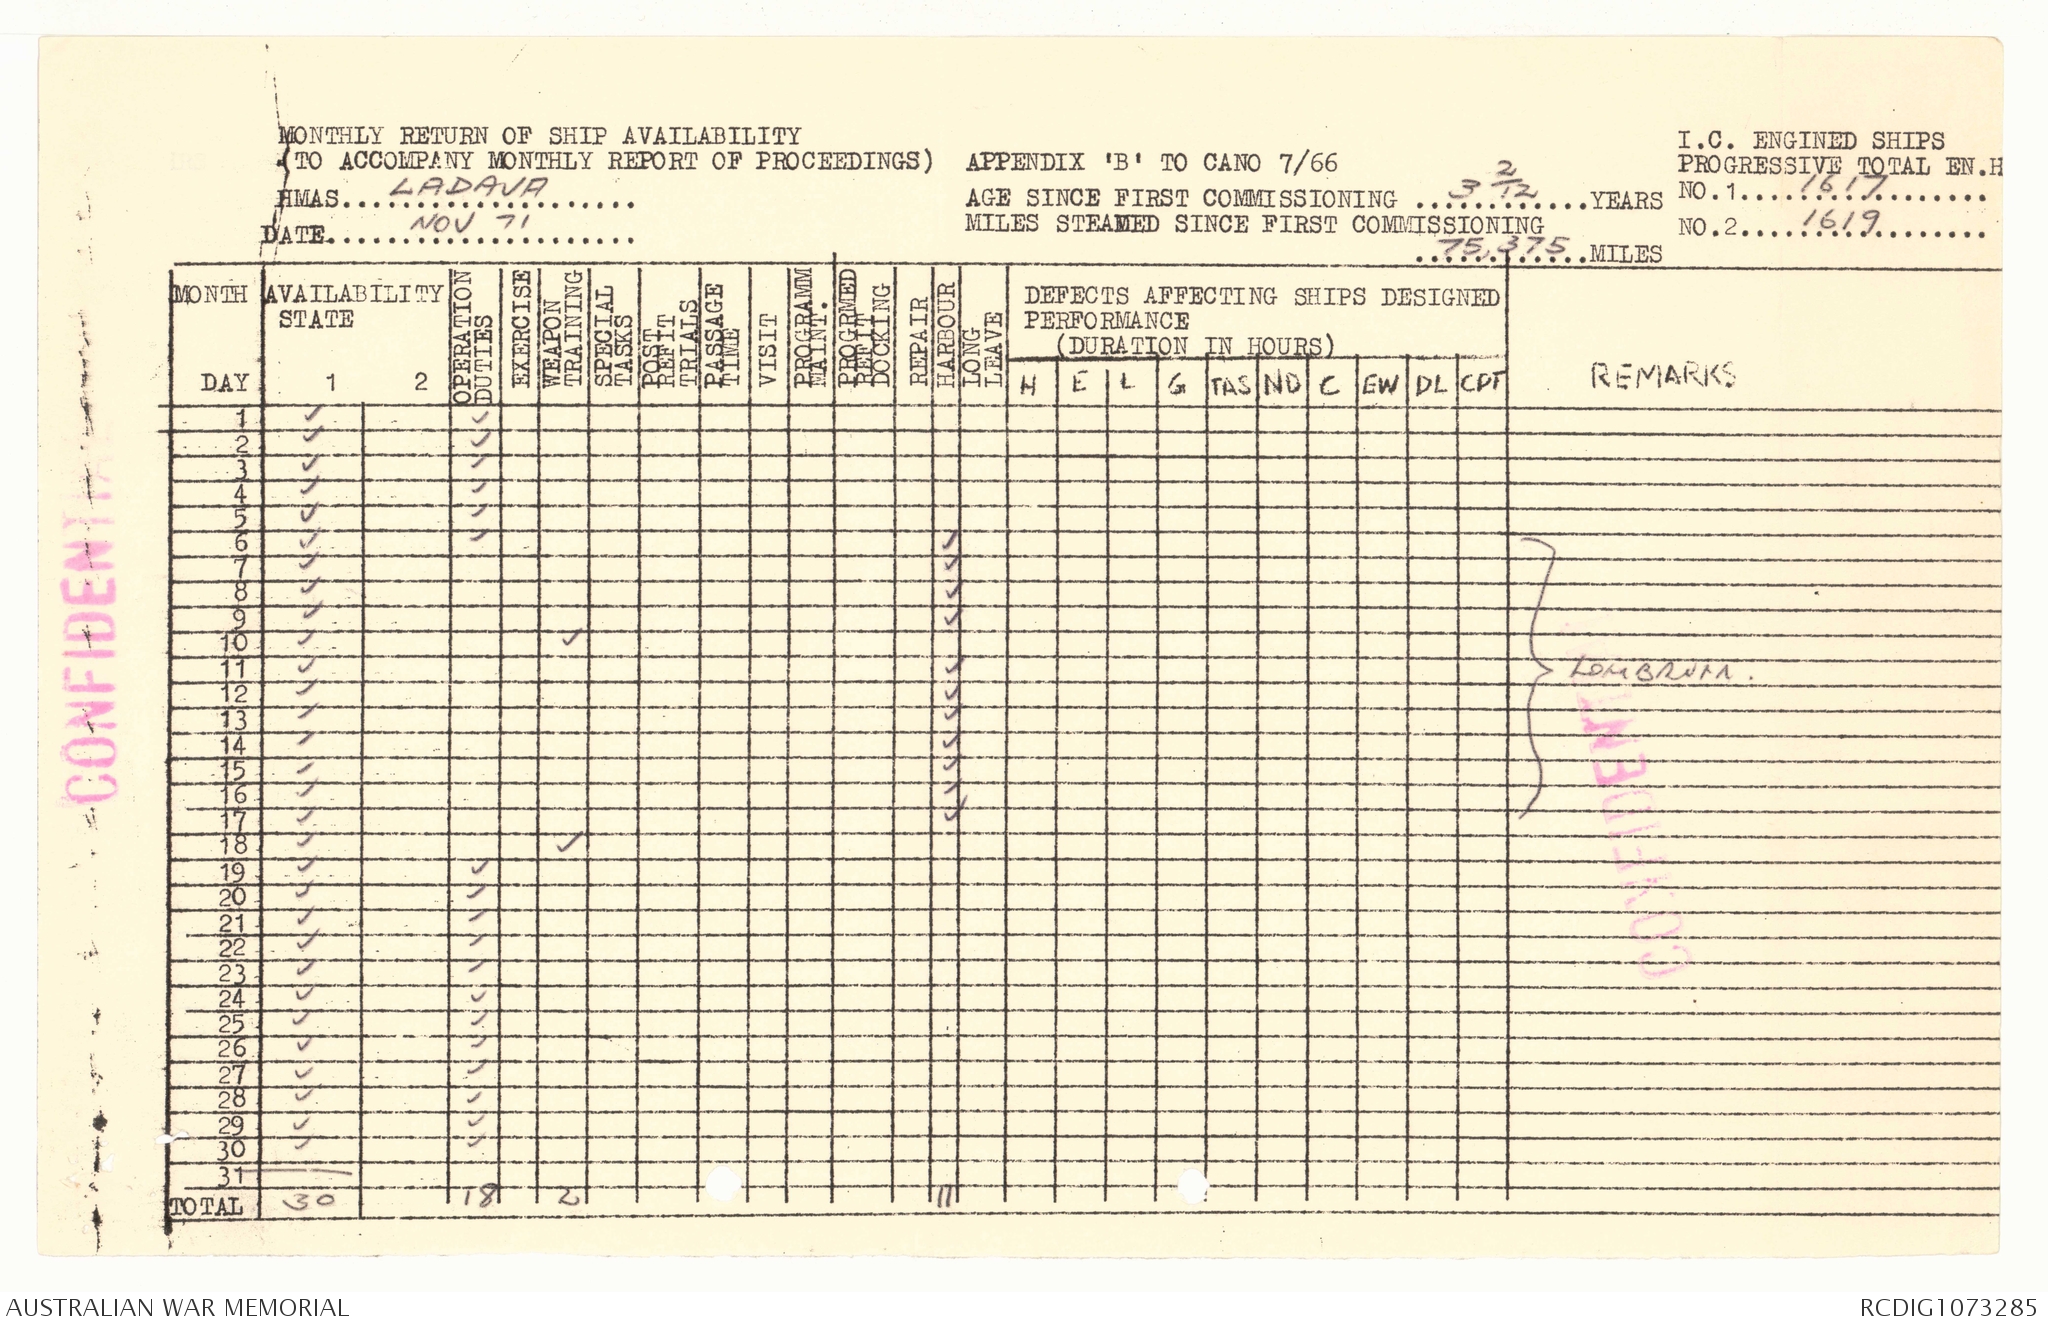 MONTHLY RETURN OF SHIP AVAILABILITY
(TO ACCOMPANY MONTHLY REPORT OF PROCEEDINGS)
HMAS.....LADAVA.....
DATE.....NOV 71.....
APPENDIX 'B' TO CANO 7/66
AGE SINCE FIRST COMMISSIONING ...3 2/12...YEARS
MILES STEAMED SINCE FIRST COMMISSIONING
...75,375...MILES
I.C. ENGINED SHIPS
PROGRESSIVE TOTAL EN.H
NO.1....1617....
NO.2....1619....
MONTH
DAY
AVAILABILITY
STATE
1 2
OPERATION
DUTIES
EXERCISE
WEAPON
TRAINING
SPECIAL
TASKS
POST
REFIT
TRIALS
PASSAGE
TIME
VISIT
PROGRAMM
MAINT.
PROGRMED
REFIT
DOCKING
REPAIR
HARBOUR
LONG
LEAVE
DEFECTS AFFECTING SHIPS DESIGNED
PERFORMANCE
(DURATION IN HOURS)
H E L G TAS ND C EW DL CDT
REMARKS
1 ✓ ✓
2 ✓ ✓
3 ✓ ✓
4 ✓ ✓
5 ✓ ✓
6 ✓ ✓
7 ✓ ✓
8 ✓ ✓
9 ✓ ✓
10 ✓ ✓
11 ✓ ✓
12 ✓ ✓
13 ✓ ✓
14 ✓ ✓
15 ✓ ✓
16 ✓ ✓
17 ✓ ✓
18 ✓ ✓
19 ✓ ✓
20 ✓ ✓
21 ✓ ✓
22 ✓ ✓
23 ✓ ✓
24 ✓ ✓
25 ✓ ✓
26 ✓ ✓
27 ✓ ✓
28 ✓ ✓
29 ✓ ✓
30 ✓ ✓
31
TOTAL 30 18 2 11
LOMBRUM.
CONFIDENTIAL
CONFIDENTIAL
AUSTRALIAN WAR MEMORIAL
RCDIG1073285